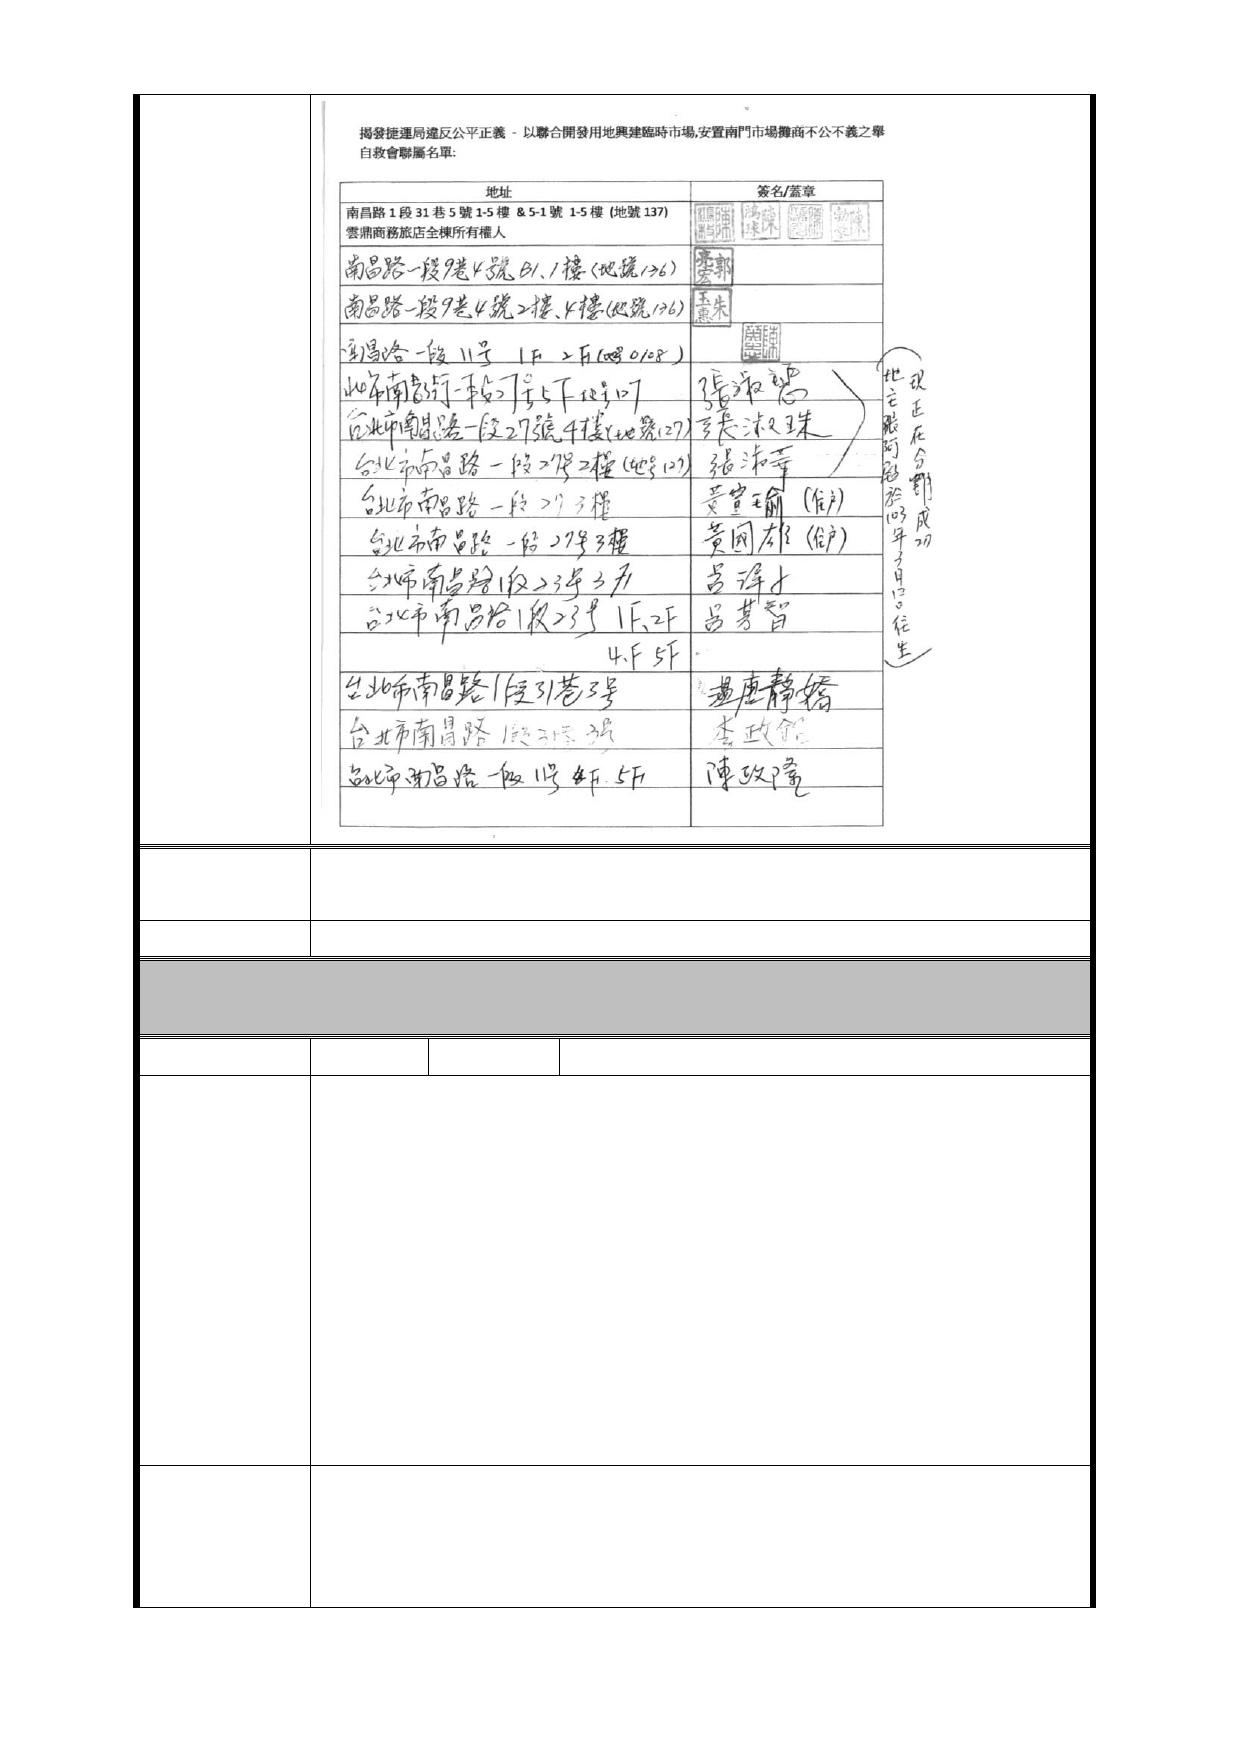 揭發捷運局違反公平正義 - 以聯合開發用地興建臨時市場,安置南門市場攤商不公不義之舉
自救會聯屬名單:
地址 簽名/蓋章
南昌路 1 段 31 巷 5 號 1-5 樓 & 5-1 號 1-5 樓 (地號 137)
雲鼎商務旅店全棟所有權人
南昌路一段9巷4號B1、1樓(地號136) 郭亮宏
南昌路一段9巷4號2樓、4樓(地號136) 朱玉惠
南昌路一段11号 1F 2F(0108) 陳
北市南昌街一段27号5F地号127 張淑
台北市南昌路一段27號4樓(地號127) 張淑珠
台北市南昌路一段27号2樓(地号127) 張淑華
台北市南昌路一段27 3樓 黃萱瑜(住戶)
台北市南昌路一段27号3樓 黃國雄(住戶)
台北市南昌路1段23号3F 呂
台北市南昌路1段23号 1F、2F 呂芳智
4.F 5F
台北市南昌路1段31巷3号 溫唐靜嬌
台北市南昌路1段31巷3号 李政
台北市南昌路一段11号 4F. 5F 陳政隆
(現正在分割成功
地主張阿 於103年3月12日往生)